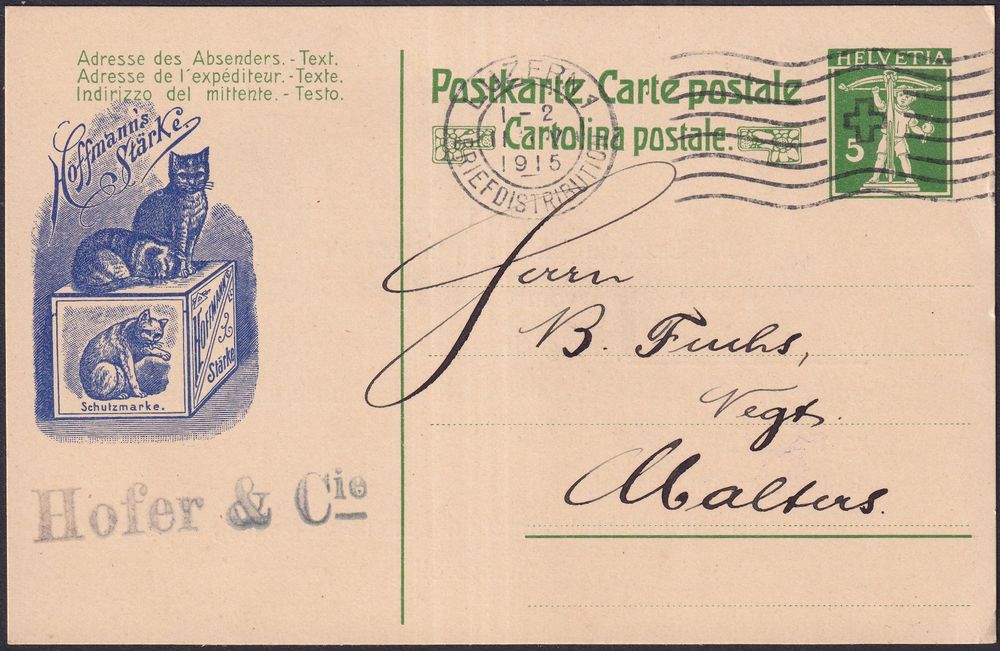 Adresse des Absenders.-Text.
Adresse de l'expéditeur.-Texte.
Indirizzo del mittente.-Testo.
Hoffmann's
Stärke.
HOFFMANN'S
Stärke
Schutzmarke.
Hofer & Cie
Postkarte. Carte postale
Cartolina postale.
LUZERN 1
1-2
1915
BRIEFDISTRIBUTION
HELVETIA
5
Herrn
B. Fuchs,
Negt.
Malters.